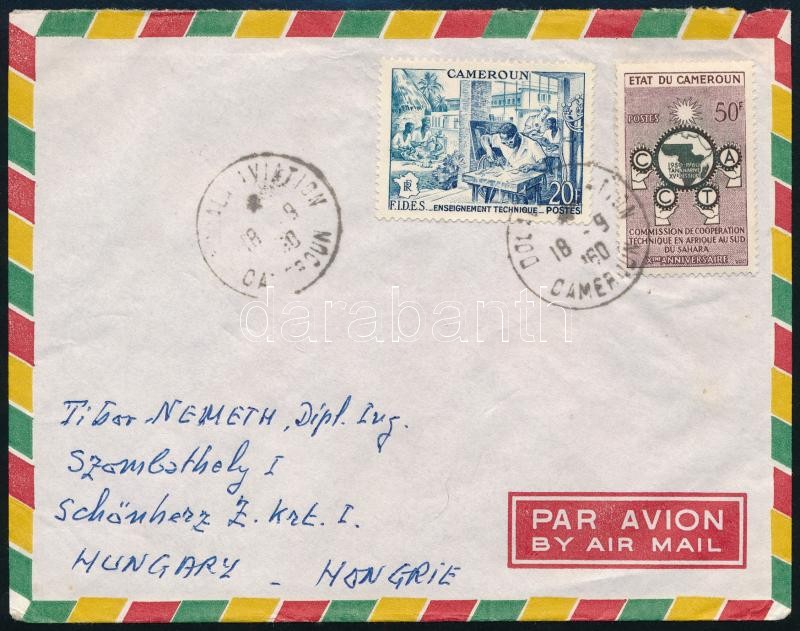 CAMEROUN
RF
F.I.D.E.S. ENSEIGNEMENT TECHNIQUE POSTES
20F
ETAT DU CAMEROUN
POSTES 50F
C C T A
1950-1960
COMMISSION DE COOPÉRATION
TECHNIQUE EN AFRIQUE AU SUD
DU SAHARA
XME ANNIVERSAIRE
AVIATION
18 - 9
60
18 - 9
1960
CAMEROUN
darabanth
Tibor NEMETH, Dipl. Ing.
Szombathely I
Schönherz Z. krt. I.
HUNGARY - HONGRIE
PAR AVION
BY AIR MAIL